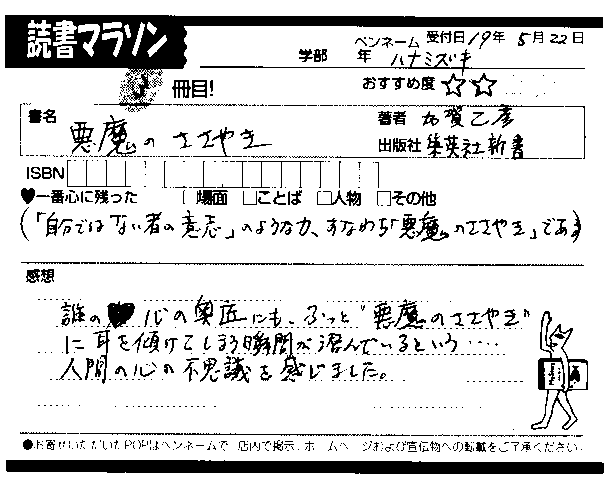 読書マラソン
ペンネーム 受付日 19年 5月 22日
学部 年 ハナミズキ
冊目! おすすめ度 ☆☆
書名 悪魔のささやき
著者 加賀乙彦
出版社 集英社新書
ISBN
♥一番心に残った □場面 □ことば □人物 □その他
(「自分ではない者の意志」のような力、すなわち「悪魔のささやき」である)
感想
誰の 心の奥底にも、ふっと"悪魔のささやき"
に耳を傾けてしまう瞬間が潜んでいるという・・・・
人間の心の不思議を感じました。
●お寄せいただいたPOPはペンネームで、店内で掲示、ホームページおよび宣伝物への転載をご了承ください。